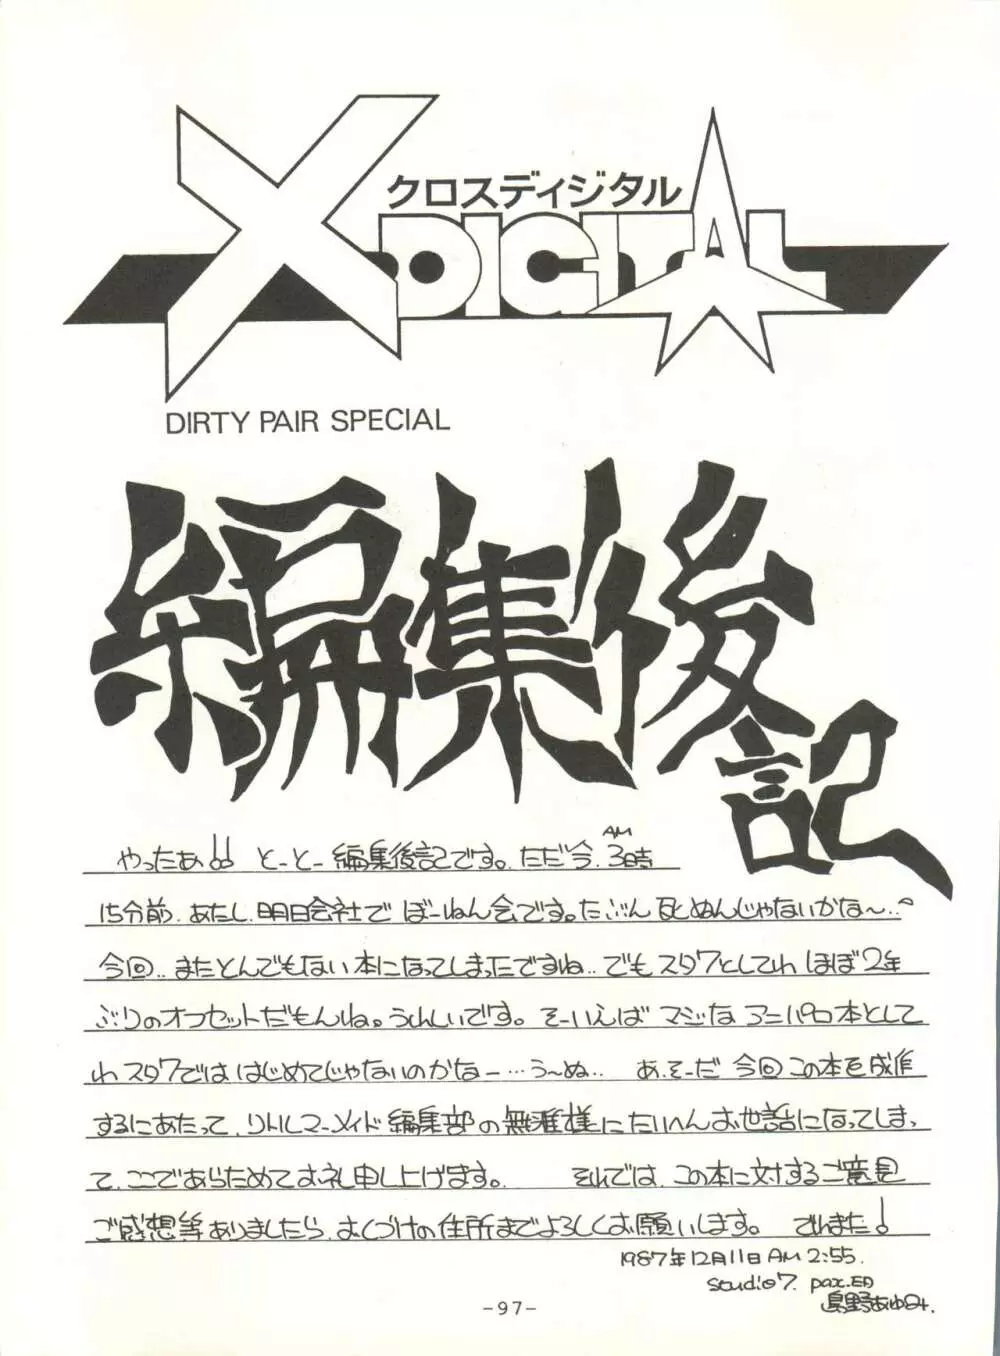 X DIGITAL
クロスディジタル
DIRTY PAIR SPECIAL
編集後記
やったぁ!! とーとー編集後記です。ただ今、AM3時
15分前、あたし、明日会社でぼーねん会です。たぶん死ぬんじゃないかな〜..
今回..またとんでもない本になってしまったですね..でもスタ7としてわ ほぼ2年
ぶりのオフセットだもんね。うれしいです。そーいえば マジなアニパロ本として
わスタ7でははじめてじゃないのかなー…う〜ぬ.. あ、そーだ 今回この本を成作
するにあたって、リトルマーメイド編集部の無雅様にたいへんお世話になってしまっ
て、ここであらためてお礼申し上げます。 それでは、この本に対するご意見
ご感想等ありましたら、おくづけの住所までよろしくお願いします。 でわまた!
1987年12月11日AM 2:55.
Studio7. pax.ED
島野あゆみ.
-97-